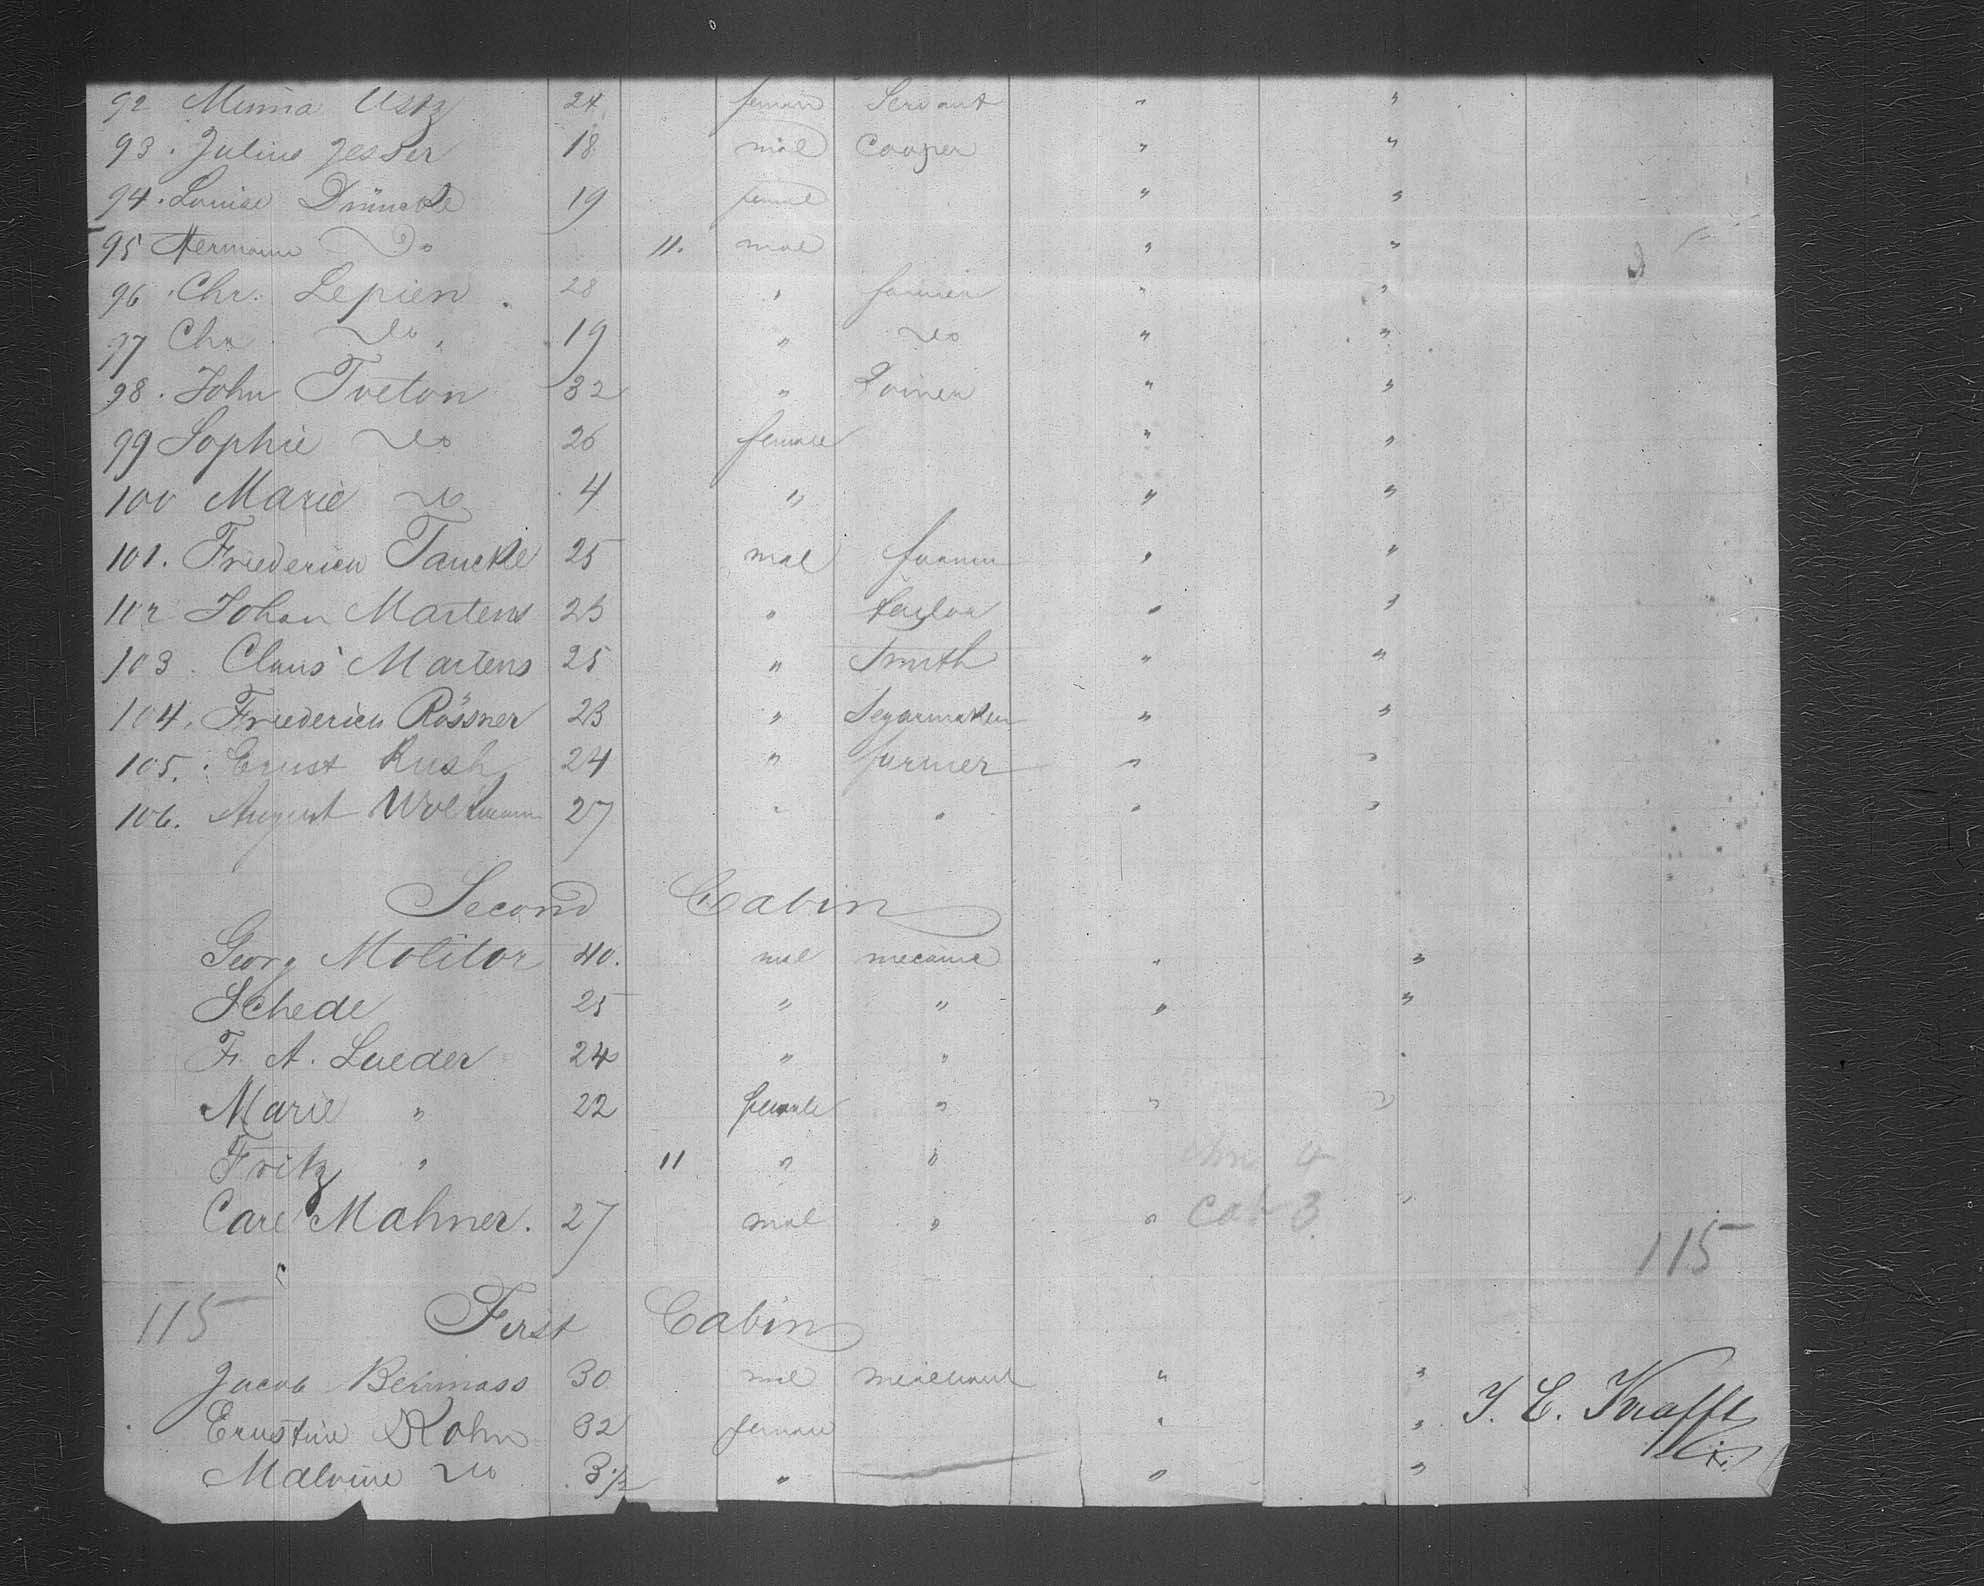 92 Minna Ustz 24 female Servant " "
93. Julius Jesser 18 mal Cooper " "
94. Louise Drünckle 19 femal " "
95 Hermann Do 11. mal " "
96. Chr. Lepien. 28 " farmer " "
97 Chr Do 19 " Do " "
98. John Tveton 32 " Joiner " "
99 Sophie Do 26 female " "
100 Marie Do 4 " " "
101. Friederich Tanckle 25 mal farmer " "
102 Johan Martens 23 " taylor " "
103. Claus Martens 25 " Smith " "
104. Friederich Rössner 23 " Segarmaker " "
105. Ernst Rush 24 " farmer " "
106. August Woltmann 27 " " " "
Second Cabin
Georg Molitor 40. mal mecanic " "
Schede 25 " " " "
F. A. Lueder 24 " " "
Marie " 22 female " " "
Fritz " 11 " "
4
Carl Mahner. 27 mal " " Cab 3 "
115
115 First Cabin
Jacob Bermass 30 mal merchant " "
Ernstine Kohn 32 female " "
Malvine Do 3 1/2 " " "